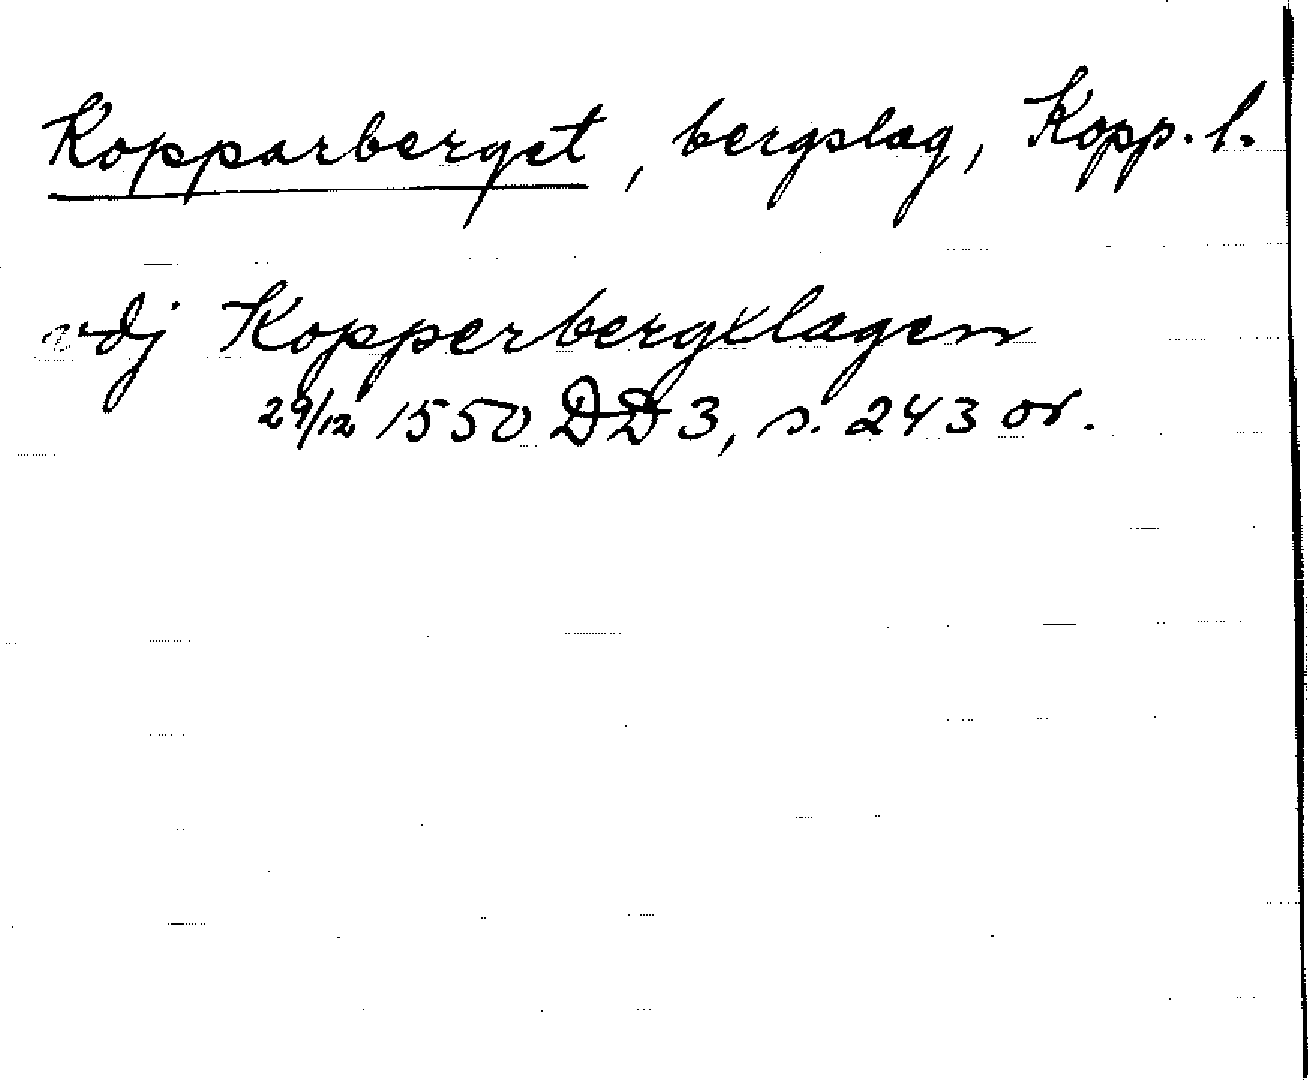 Kopparberget, bergslag, Kopp. l.
vdj Kopperbergxlagen
29/12 1550 DD 3, s. 243 or.